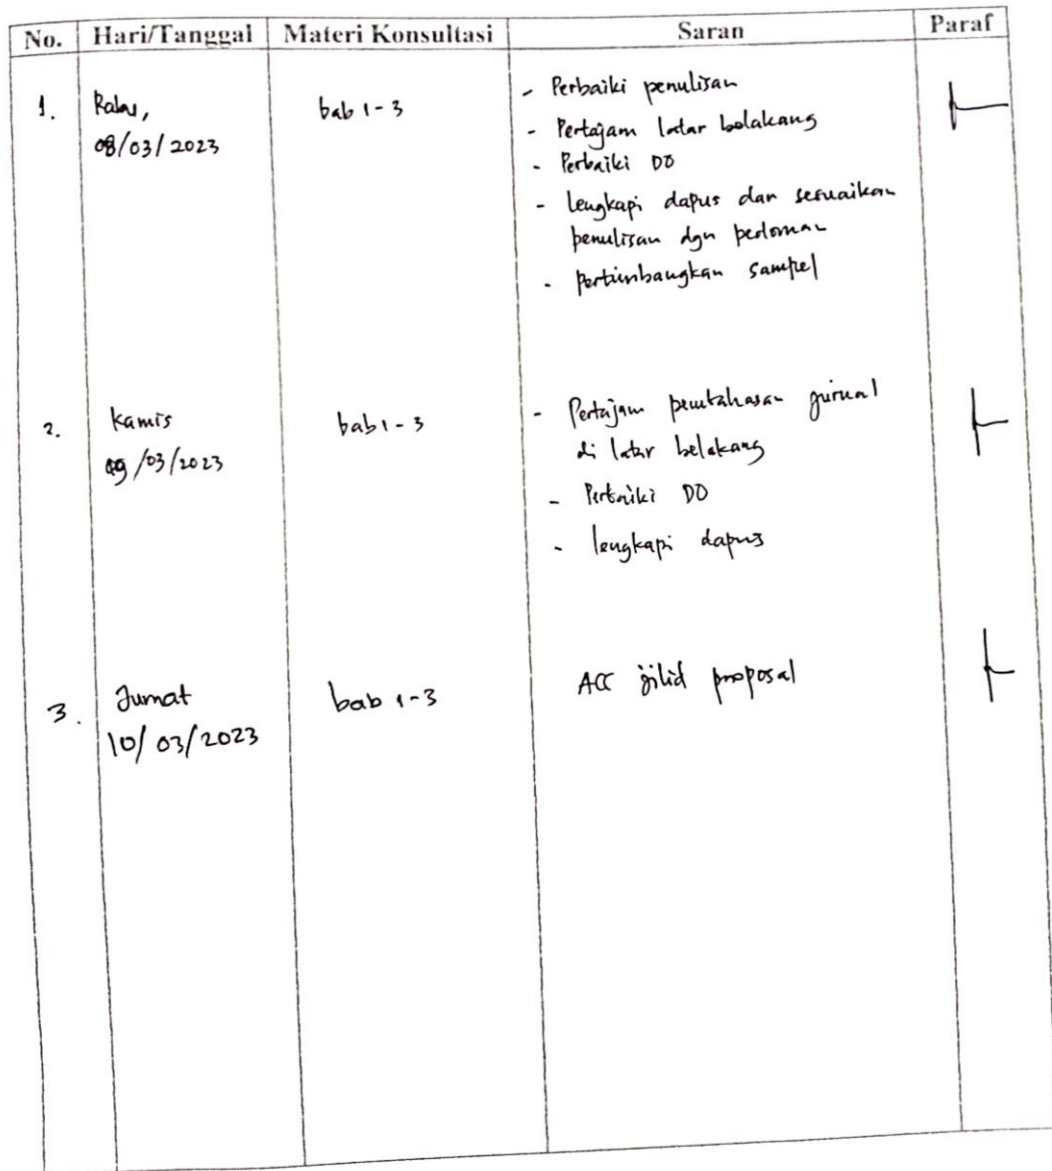 No. Hari/Tanggal Materi Konsultasi Saran Paraf
1. Rabu, bab 1-3 - Perbaiki penulisan
08/03/2023 - Pertajam latar belakang
- Perbaiki DO
- lengkapi dapus dan sesuaikan
penulisan dgn pedoman
- pertimbangkan sampel
2. Kamis bab 1-3 - Pertajam pembahasan jurnal
09/03/2023 di latar belakang
- Perbaiki DO
- lengkapi dapus
3. Jumat bab 1-3 ACC jilid proposal
10/03/2023